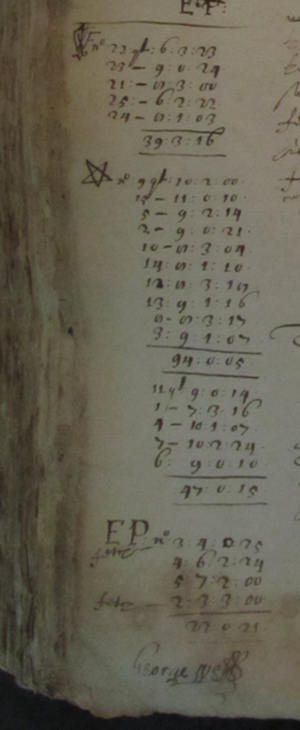 EP:
no 22 qt: 6: 3: 23
23 - 9: 0: 24
21: - 8: 3: 00
25 - 6: 2: 22
24 - 8: 1: 03
39: 3: 16
no 9 qt: 10: 2: 00
15 - 11: 0: 10
5 - 9: 2: 14
2 - 9: 0: 21
10 - 8: 3: 04
14: 8: 1: 10
12: 8: 3: 18
13: 9: 1: 16
8 - 8: 3: 17
3: 9: 1: 07
94: 0: 05
11 qt 9: 0: 14
1 - 7: 3: 16
4 - 10: 1: 07
7 - 10: 2: 24
6: 9: 0: 10
47: 0: 15
EP: no 3: 4: 0: 25
4: 6: 2: 24
5: 7: 2: 00
2: 3: 3: 00
22: 0: 21
George